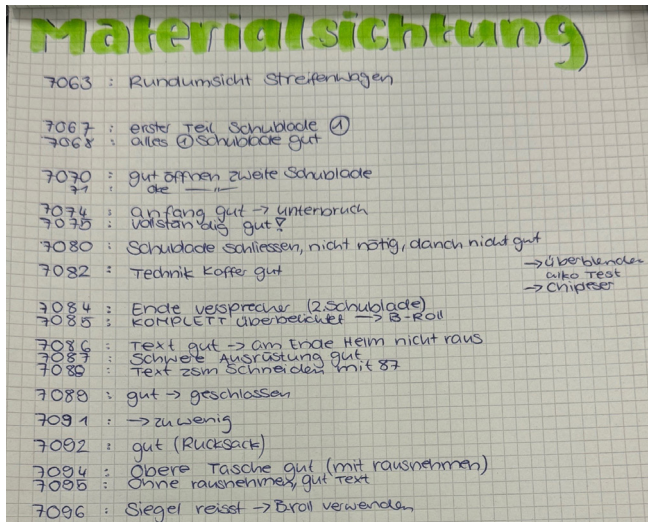 Materialsichtung
7063 : Rundumsicht Streifenwagen
7067 : erster Teil Schublade ①
7068 : alles ① Schublade gut
7070 : gut öffnen zweite Schublade
71 : oke —〃—
7074 : anfang gut → unterbruch
7075 : vollständig gut?
7080 : Schublade schliessen, nicht nötig, danch nicht gut
7082 : Technik Koffer gut
→ überblenden
alko Test
→ Chipleser
7084 : Ende versprecher (2. Schublade)
7085 : KOMPLETT überbelichtet → B-Roll
7086 : Text gut → am Ende Helm nicht raus
7087 : Schwere Ausrüstung gut
7088 : Text zsm schneiden mit 87
7089 : gut → geschlossen
7091 : → zu wenig
7092 : gut (Rucksack)
7094 : Obere Tasche gut (mit rausnehmen)
7095 : Ohne rausnehmen, gut Text
7096 : Siegel reisst → Broll verwenden